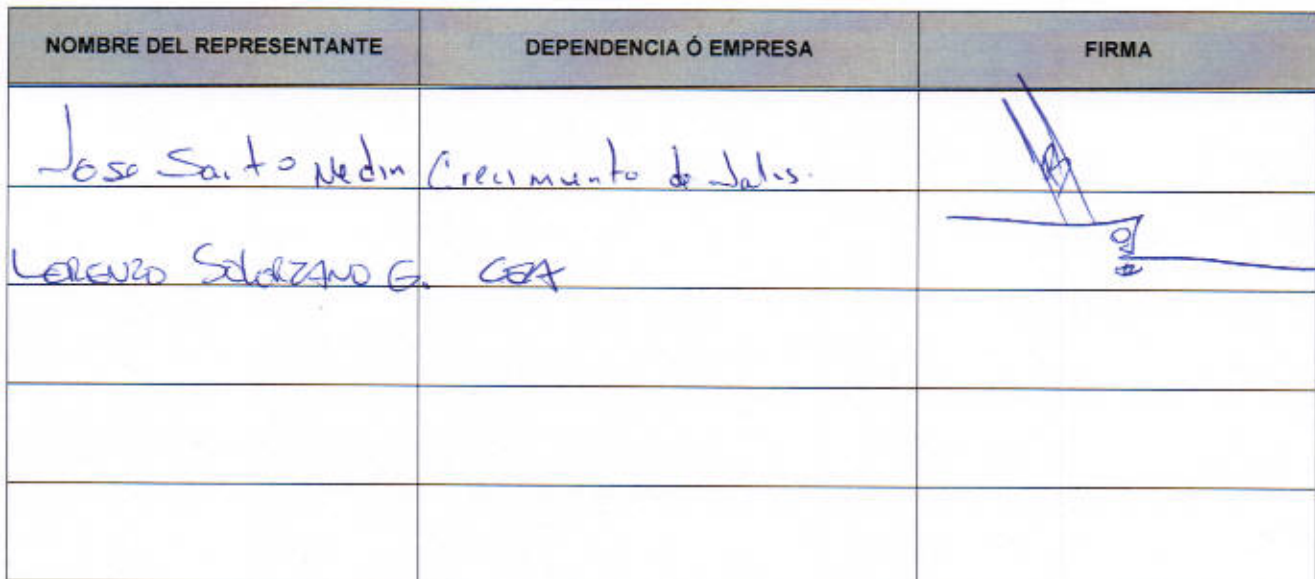 NOMBRE DEL REPRESENTANTE DEPENDENCIA Ó EMPRESA FIRMA
Jose Santo Medin Crecimiento de Jalis.
LORENZO SOLORZANO G. CEA